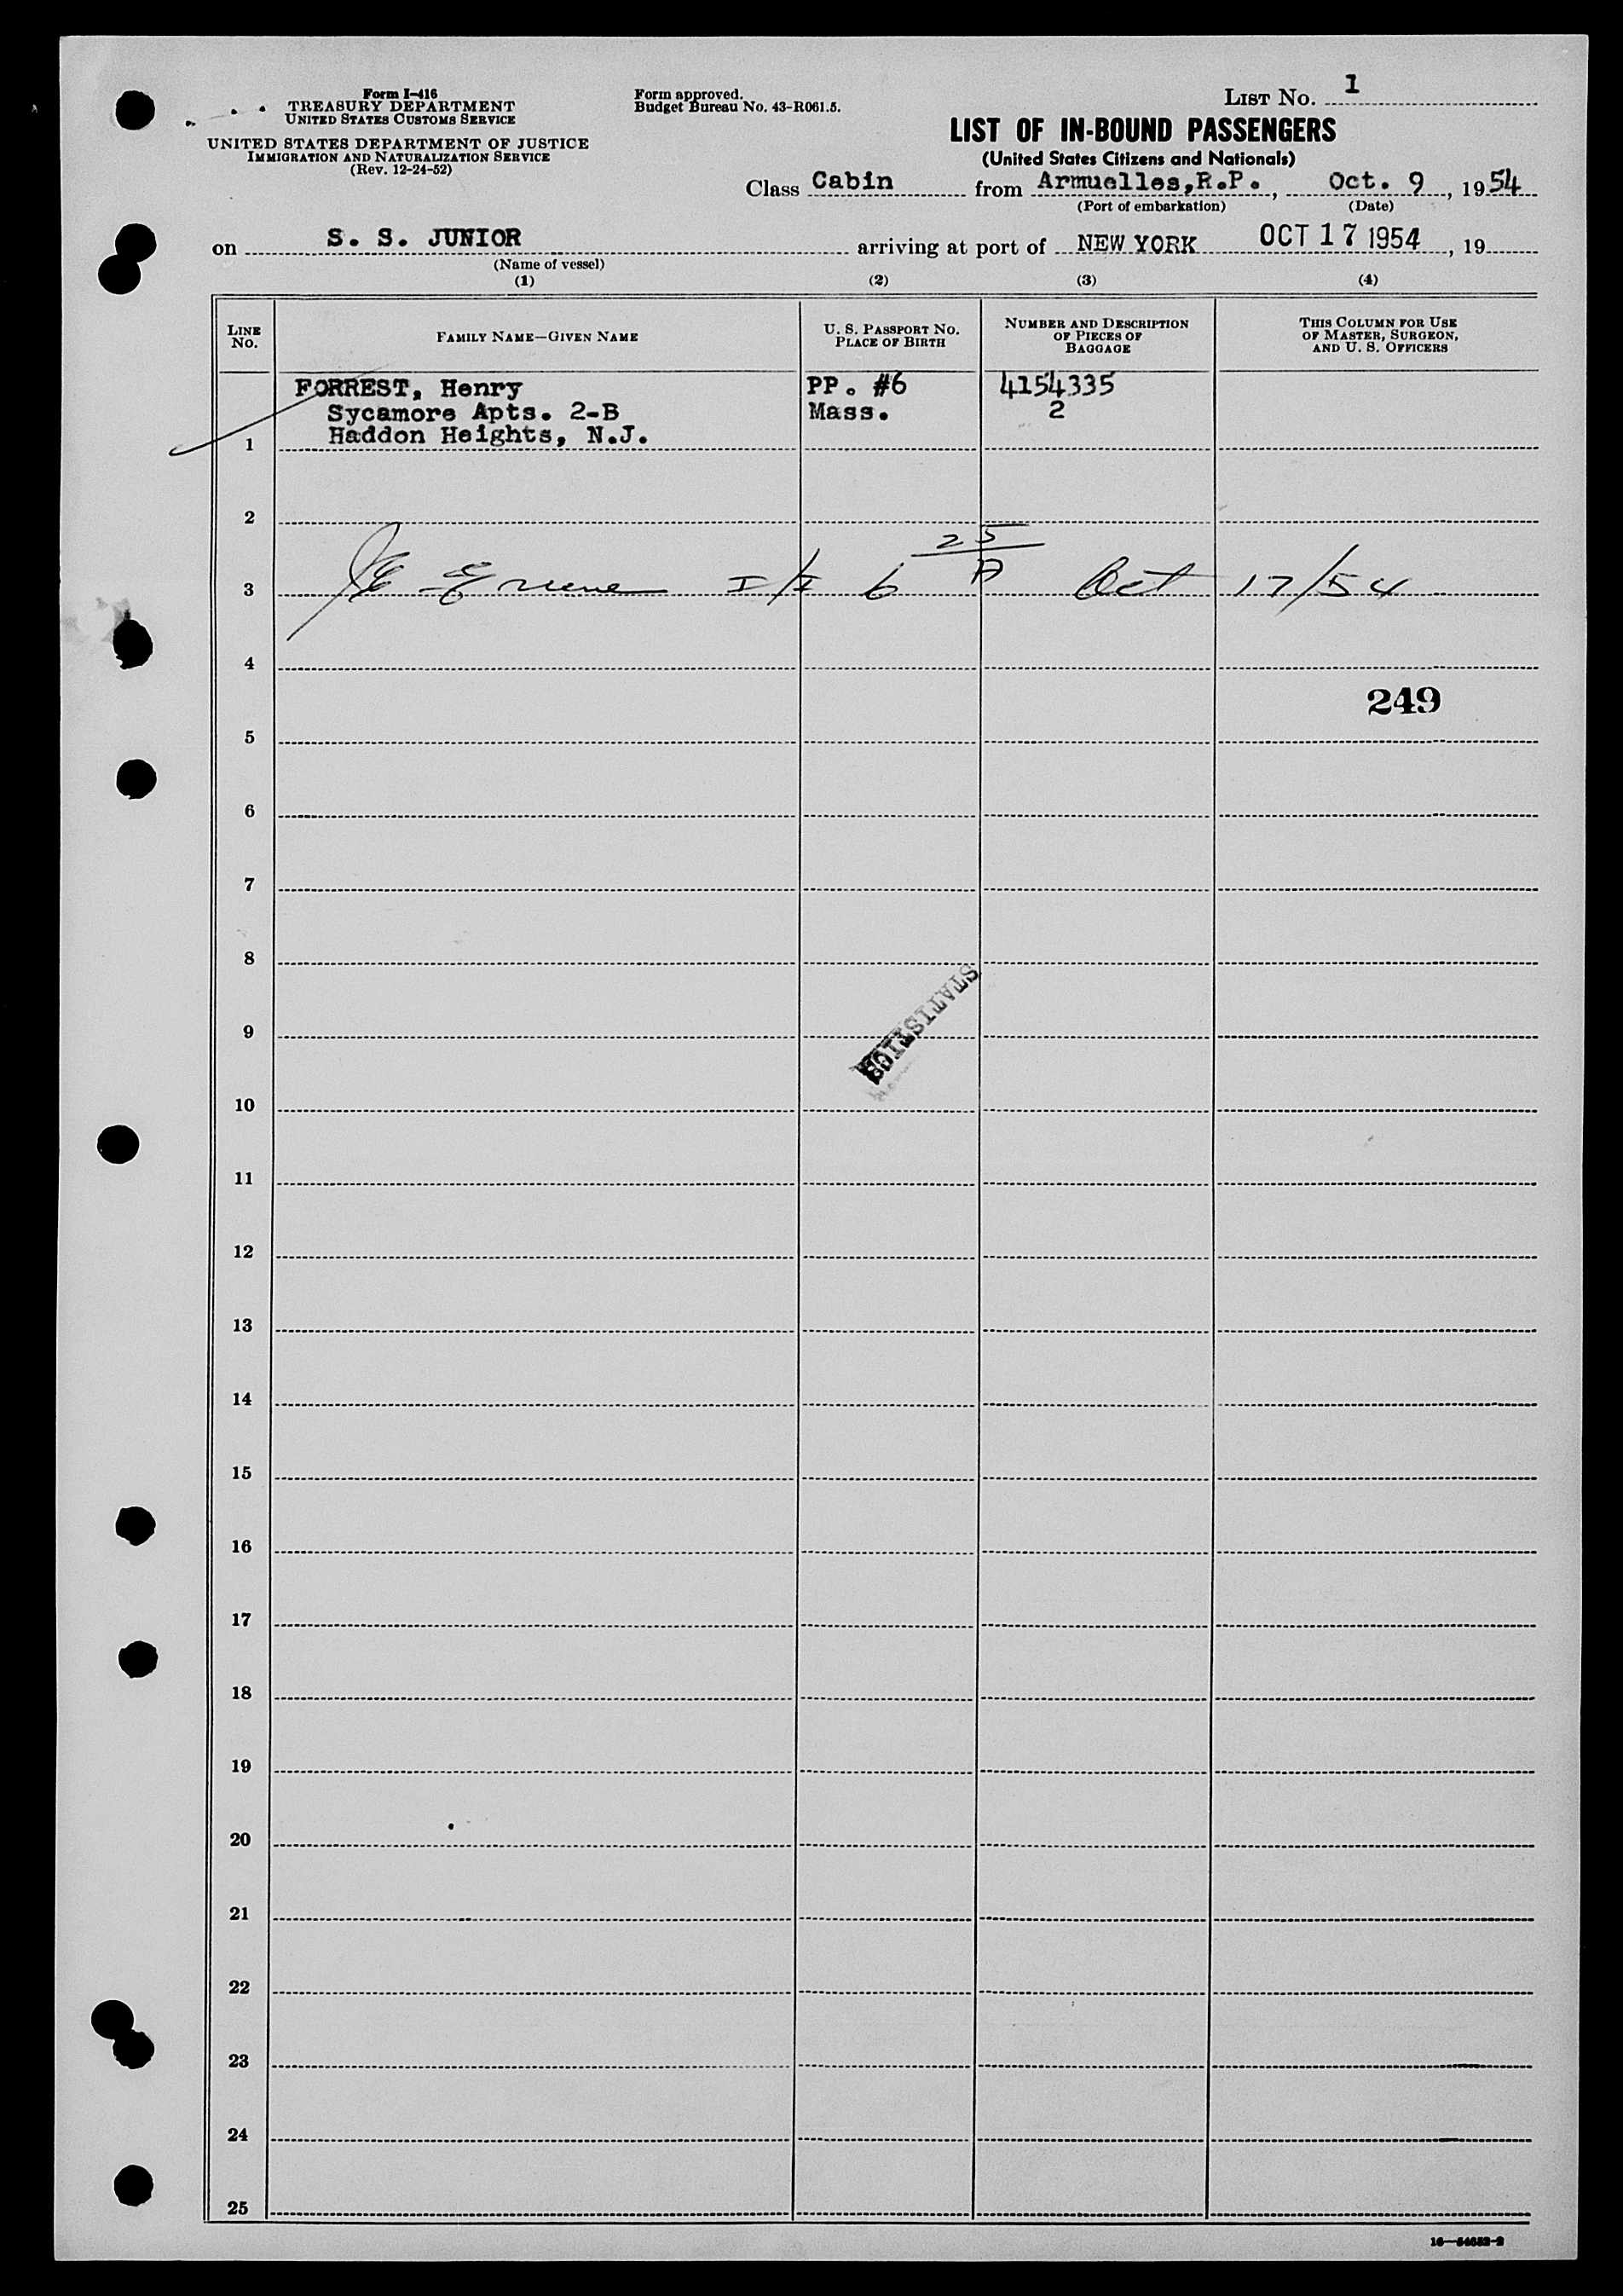 Form I-416
TREASURY DEPARTMENT
UNITED STATES CUSTOMS SERVICE
UNITED STATES DEPARTMENT OF JUSTICE
IMMIGRATION AND NATURALIZATION SERVICE
(Rev. 12-24-52)
Form approved.
Budget Bureau No. 43-R061.5.
LIST NO. 1
LIST OF IN-BOUND PASSENGERS
(United States Citizens and Nationals)
Class Cabin from Armuelles,R.P., Oct. 9, 1954
(Port of embarkation) (Date)
on S. S. JUNIOR arriving at port of NEW YORK OCT 17 1954, 19
(Name of vessel)
(1) (2) (3) (4)
LINE NO. FAMILY NAME—GIVEN NAME U. S. PASSPORT NO. PLACE OF BIRTH NUMBER AND DESCRIPTION OF PIECES OF BAGGAGE THIS COLUMN FOR USE OF MASTER, SURGEON, AND U. S. OFFICERS
FORREST, Henry PP. #6 4154335
Sycamore Apts. 2-B Mass. 2
1 Haddon Heights, N.J.
2
25
3 I/I 6 A Oct 17/54
4
249
5
6
7
8
STATISTICS
9
10
11
12
13
14
15
16
17
18
19
20
21
22
23
24
25